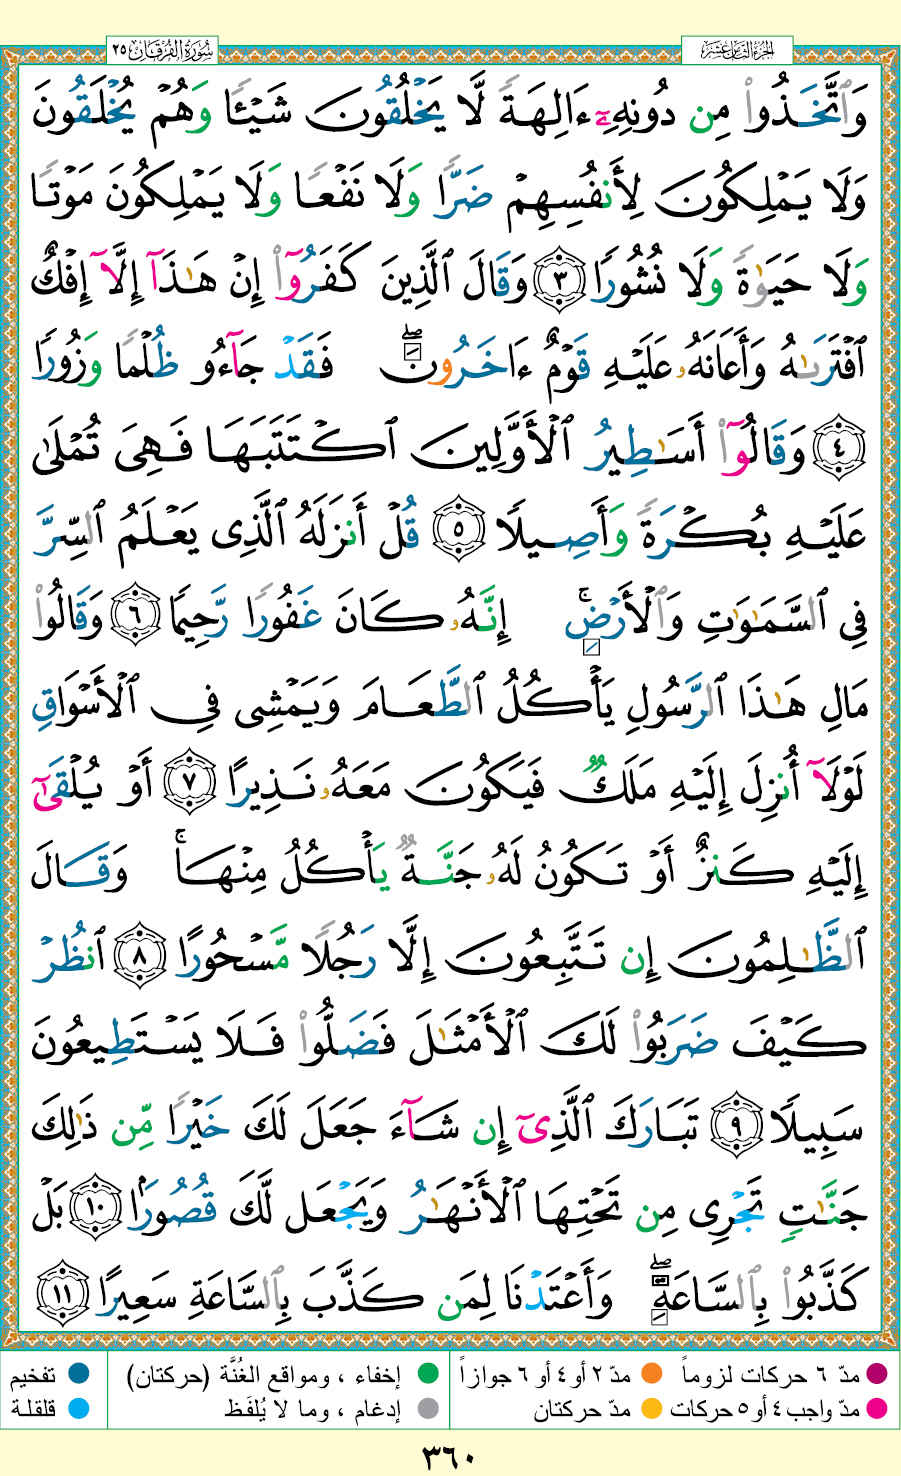 سُورَةُ الفُرْقَان ٢٥
الجزء الثامن عشر
وَٱتَّخَذُوا۟ مِن دُونِهِۦٓ ءَالِهَةً لَّا يَخْلُقُونَ شَيْـًٔا وَهُمْ يُخْلَقُونَ
وَلَا يَمْلِكُونَ لِأَنفُسِهِمْ ضَرًّا وَلَا نَفْعًا وَلَا يَمْلِكُونَ مَوْتًا
وَلَا حَيَوٰةً وَلَا نُشُورًا ٣ وَقَالَ ٱلَّذِينَ كَفَرُوٓا۟ إِنْ هَـٰذَآ إِلَّآ إِفْكٌ
ٱفْتَرَىٰهُ وَأَعَانَهُۥ عَلَيْهِ قَوْمٌ ءَاخَرُونَ ۖ فَقَدْ جَآءُو ظُلْمًا وَزُورًا
٤ وَقَالُوٓا۟ أَسَـٰطِيرُ ٱلْأَوَّلِينَ ٱكْتَتَبَهَا فَهِىَ تُمْلَىٰ
عَلَيْهِ بُكْرَةً وَأَصِيلًا ٥ قُلْ أَنزَلَهُ ٱلَّذِى يَعْلَمُ ٱلسِّرَّ
فِى ٱلسَّمَـٰوَٰتِ وَٱلْأَرْضِ ۚ إِنَّهُۥ كَانَ غَفُورًا رَّحِيمًا ٦ وَقَالُوا۟
مَالِ هَـٰذَا ٱلرَّسُولِ يَأْكُلُ ٱلطَّعَامَ وَيَمْشِى فِى ٱلْأَسْوَاقِ
لَوْلَآ أُنزِلَ إِلَيْهِ مَلَكٌ فَيَكُونَ مَعَهُۥ نَذِيرًا ٧ أَوْ يُلْقَىٰٓ
إِلَيْهِ كَنزٌ أَوْ تَكُونُ لَهُۥ جَنَّةٌ يَأْكُلُ مِنْهَا ۚ وَقَالَ
ٱلظَّـٰلِمُونَ إِن تَتَّبِعُونَ إِلَّا رَجُلًا مَّسْحُورًا ٨ ٱنظُرْ
كَيْفَ ضَرَبُوا۟ لَكَ ٱلْأَمْثَـٰلَ فَضَلُّوا۟ فَلَا يَسْتَطِيعُونَ
سَبِيلًا ٩ تَبَارَكَ ٱلَّذِىٓ إِن شَآءَ جَعَلَ لَكَ خَيْرًا مِّن ذَٰلِكَ
جَنَّـٰتٍ تَجْرِى مِن تَحْتِهَا ٱلْأَنْهَـٰرُ وَيَجْعَل لَّكَ قُصُورًۢا ١٠ بَلْ
كَذَّبُوا۟ بِٱلسَّاعَةِ ۖ وَأَعْتَدْنَا لِمَن كَذَّبَ بِٱلسَّاعَةِ سَعِيرًا ١١
مدّ ٦ حركات لزوماً مدّ ٢ أو ٤ أو ٦ جوازاً إخفاء ، ومواقع الغُنَّة (حركتان) تفخيم
مدّ واجب ٤ أو ٥ حركات مدّ حركتان إدغام ، وما لا يُلفَظ قلقلة
٣٦٠